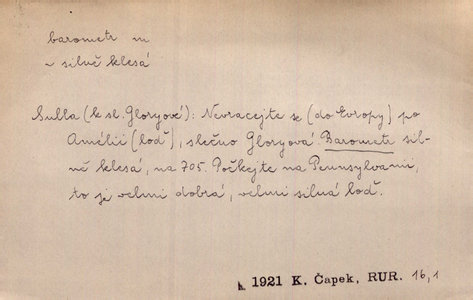 barometr m
~ silně klesá
Sulla (k sl. Gloryové): Nevracejte se (do Evropy) po
Amélii (loď), slečno Gloryová. Barometr sil-
ně klesá, na 705. Počkejte na Pennsylvanii,
to je velmi dobrá, velmi silná loď.
1921 K. Čapek, RUR. 16,1